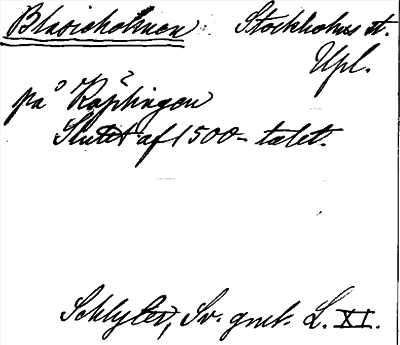 Blasieholmen Stockholms st.
Upl.
på Käplingen
Slutet af 1500-talet.
Schlyter, Sv. gml. L. XI.